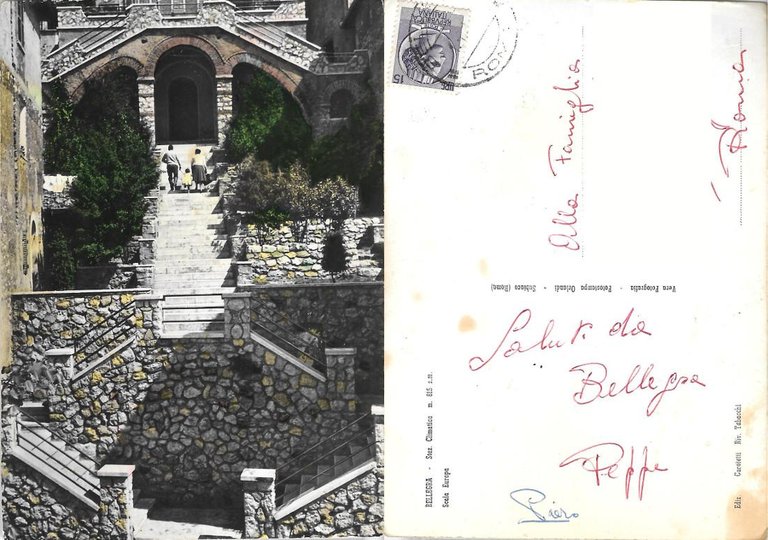 Alla Famiglia
Roma
Vera Fotografia - Fotostampa Orlandi - Subiaco (Roma)
Saluti da
Bellegra
Peppe
Piero
BELLEGRA - Staz. Climatica m. 815 s.m.
Scala Europa
Ediz. Caroletti Riv. Tabacchi
15
ROMA